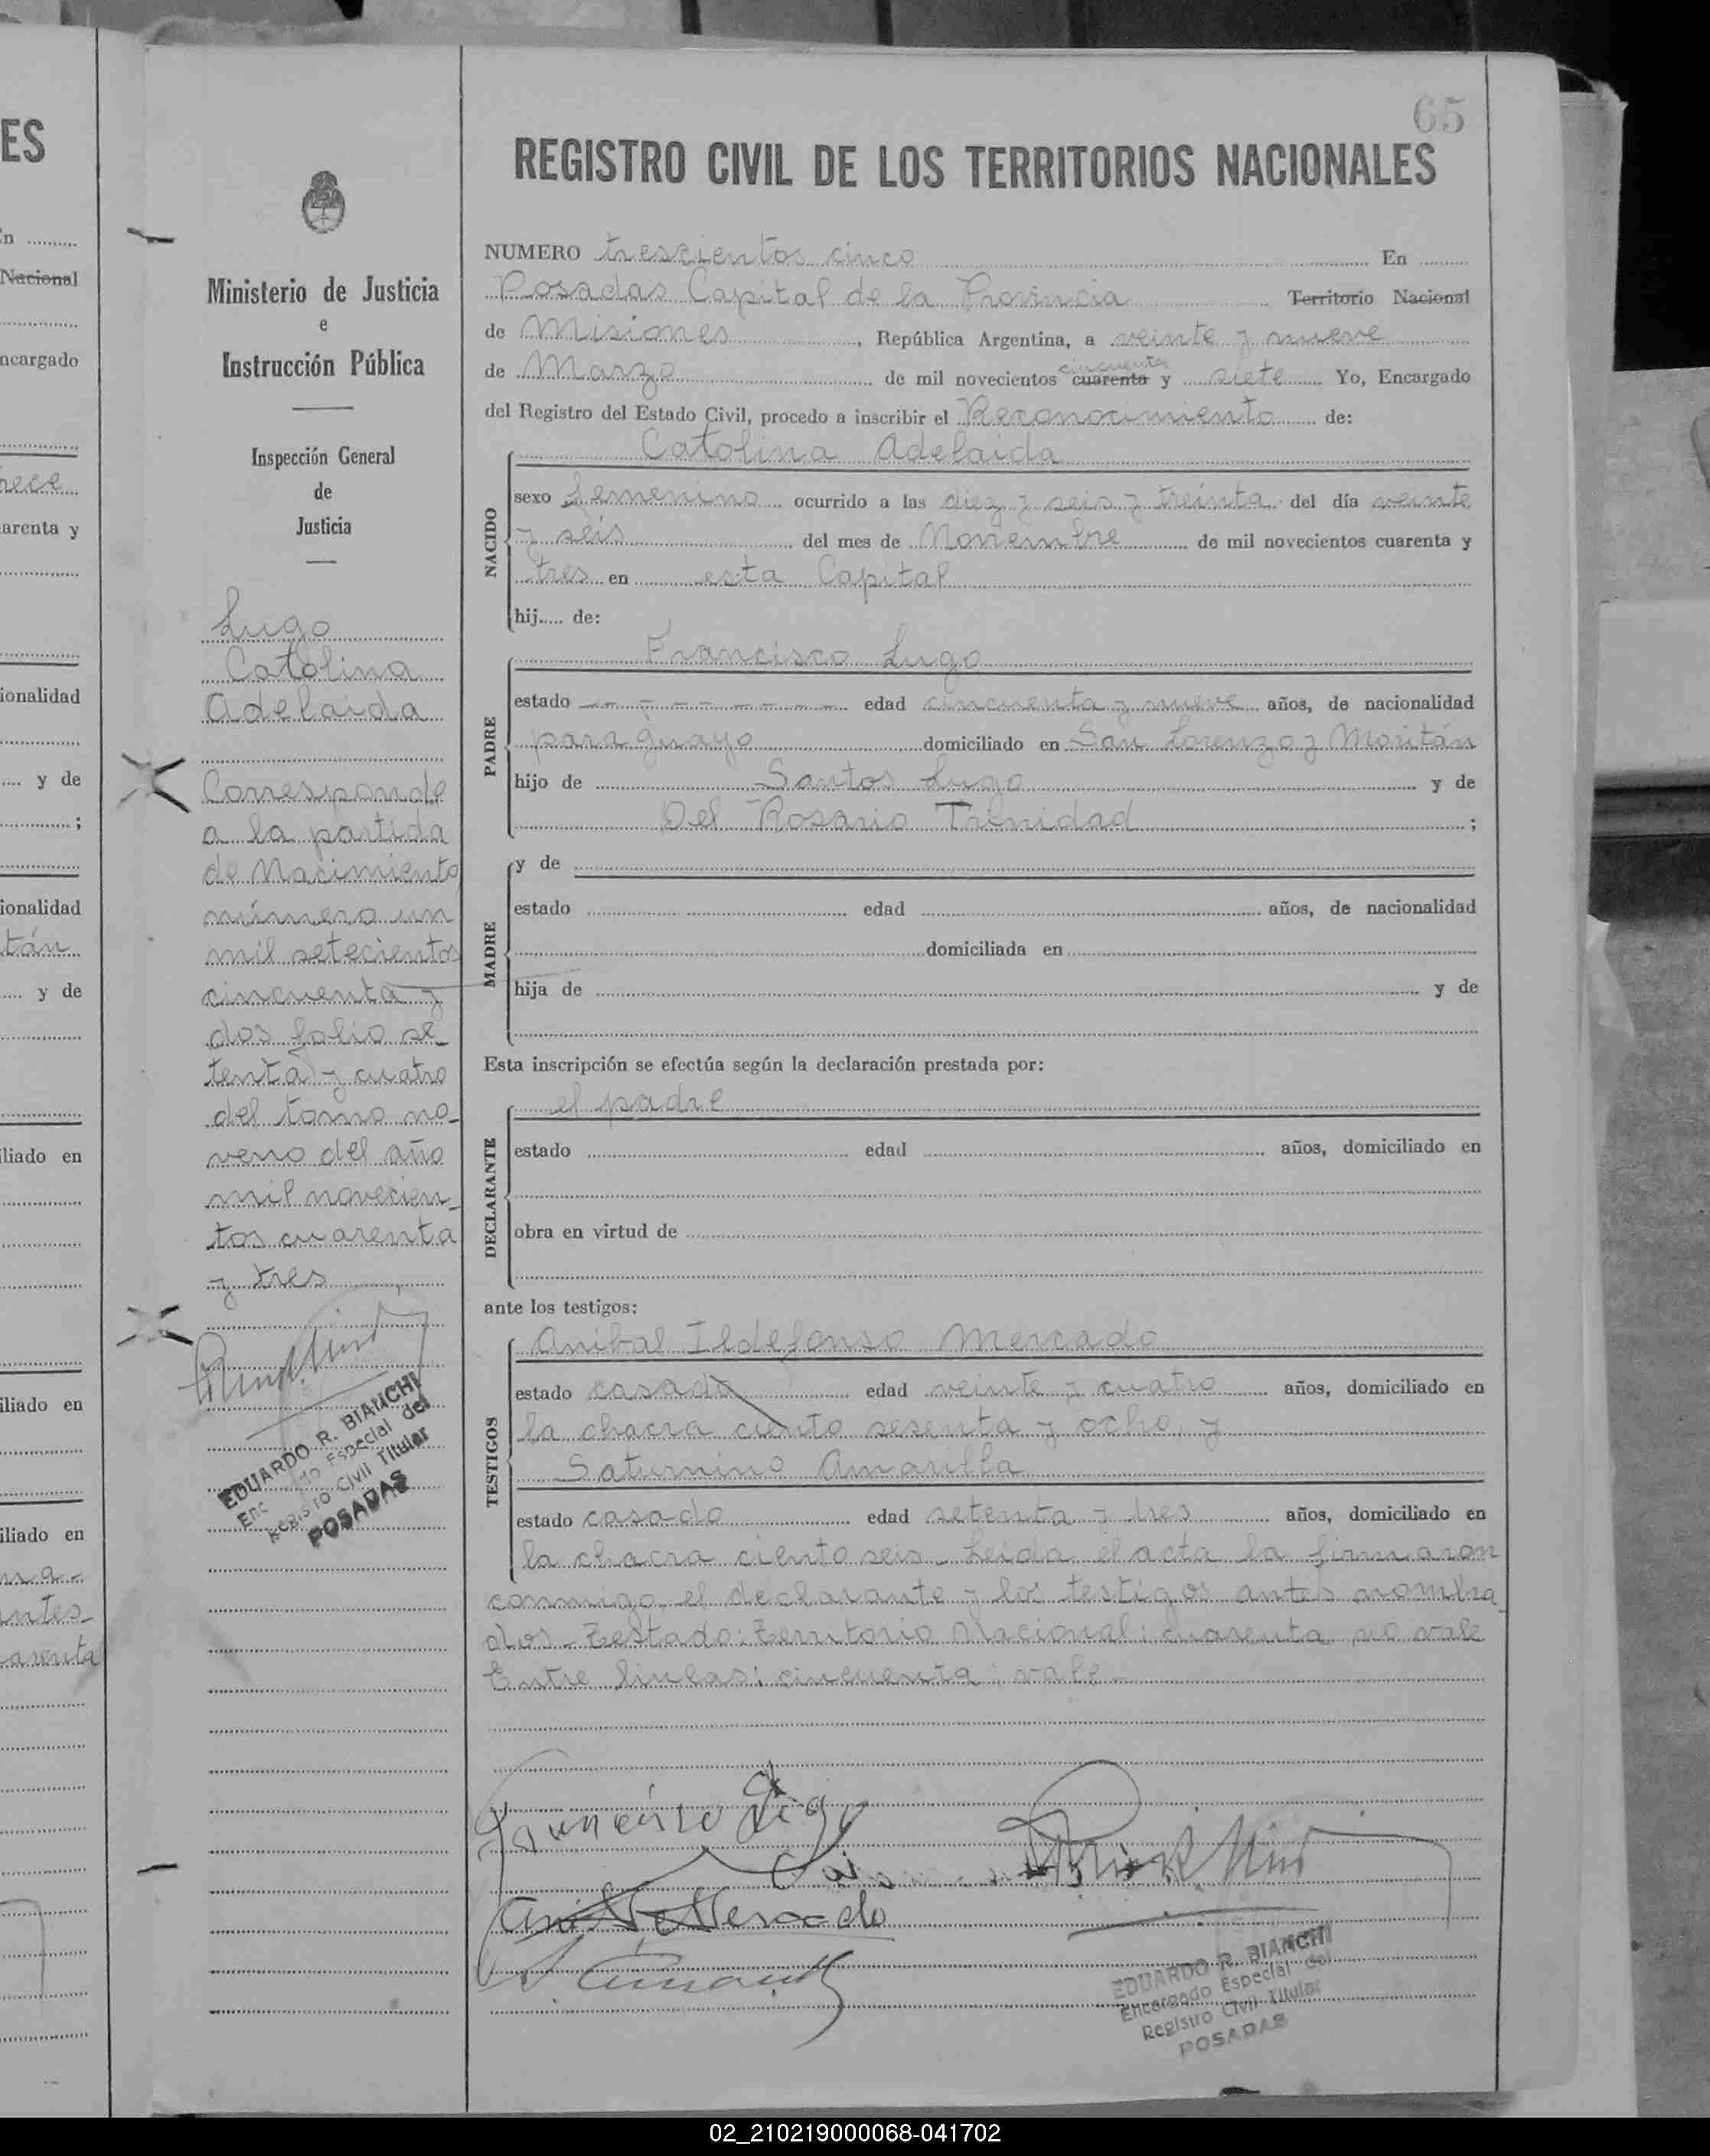 ES
n
Nacional
ncargado
hece
arenta y
ionalidad
y de
;
ionalidad
tán
y de
iliado en
iliado en
iliado en
antes
arenta
Ministerio de Justicia
e
Instrucción Pública
Inspección General
de
Justicia
Lugo
Catolina
Adelaida
Corresponde
a la partida
de Nacimiento
número un
mil setecientos
cincuenta y
dos folio se_
tenta y cuatro
del tomo no_
veno del año
mil novecien_
tos cuarenta
y tres
EDUARDO R. BIANCHI
Enc do Especial del
Registro Civil Titular
POSADAS
65
REGISTRO CIVIL DE LOS TERRITORIOS NACIONALES
NUMERO trescientos cinco En
Posadas Capital de la Provincia Territorio Nacional
de Misiones, República Argentina, a veinte y nueve
cincuenta
de Marzo de mil novecientos cuarenta y siete Yo, Encargado
del Registro del Estado Civil, procedo a inscribir el Reconocimiento de:
Catolina Adelaida
NACIDO
sexo femenino ocurrido a las diez y seis y treinta del día veinte
y seis del mes de Noviembre de mil novecientos cuarenta y
tres en esta Capital
hij..... de:
Francisco Lugo
PADRE
estado - - - - - - - edad cincuenta y nueve años, de nacionalidad
paraguayo domiciliado en San Lorenzo y Moritán
hijo de Santos Lugo y de
Del Rosario Trinidad ;
MADRE
y de
estado edad años, de nacionalidad
domiciliada en
hija de y de
Esta inscripción se efectúa según la declaración prestada por:
el padre
DECLARANTE
estado edad años, domiciliado en
obra en virtud de
ante los testigos:
Anibal Ildefonso Mercado
TESTIGOS
estado casado edad veinte y cuatro años, domiciliado en
la chacra ciento sesenta y ocho, y
Saturnino Amarilla
estado casado edad setenta y tres años, domiciliado en
la chacra ciento seis. Leida el acta la firmaron
conmigo el declarante y los testigos antes nombra_
dos. Testado: Territorio Nacional: cuarenta no vale
Entre lineas: cincuenta: vale.
Francisco Lugo
Anibal I Mercado
S. Amarilla
EDUARDO R. BIANCHI
Encargado Especial del
Registro Civil Titular
POSADAS
02_210219000068-041702